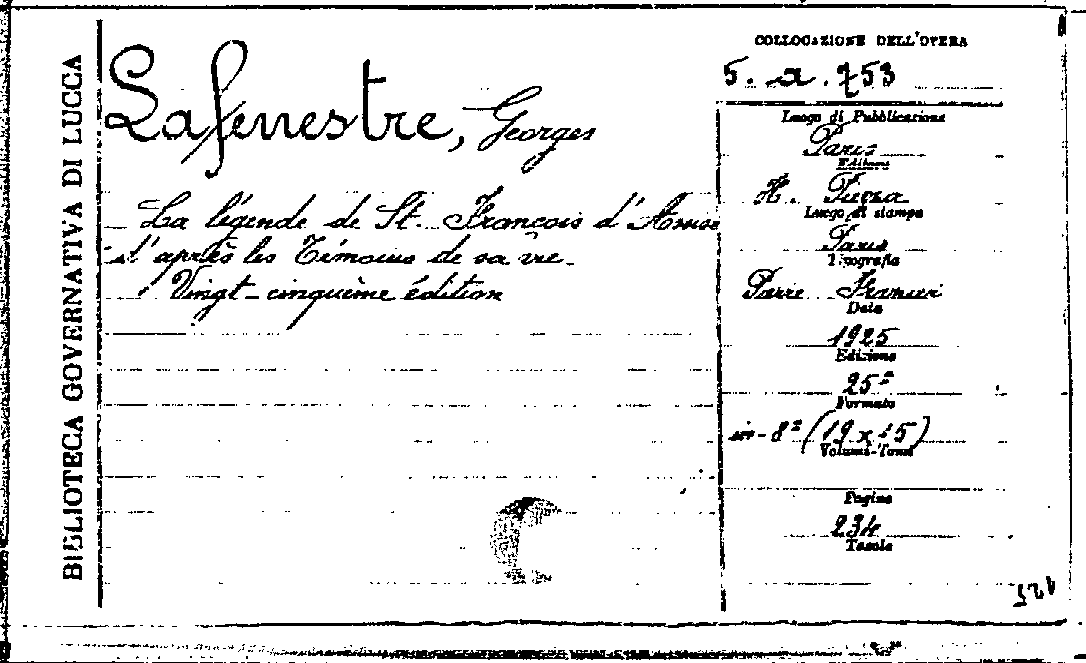 BIBLIOTECA GOVERNATIVA DI LUCCA
Lafenestre, Georges
La légende de St. François d'Assise
d'après les Témoins de sa vie.
Vingt-cinquième édition
COLLOCAZIONE DELL'OPERA
5. a. 753
Luogo di Pubblicazione
Paris
Editore
H. Piazza
Luogo di stampa
Paris
Tipografia
Data
1925
Edizione
25ª
Formato
in-8º (19 x 15)
Volumi-Tomi
Pagine
234
Tavole